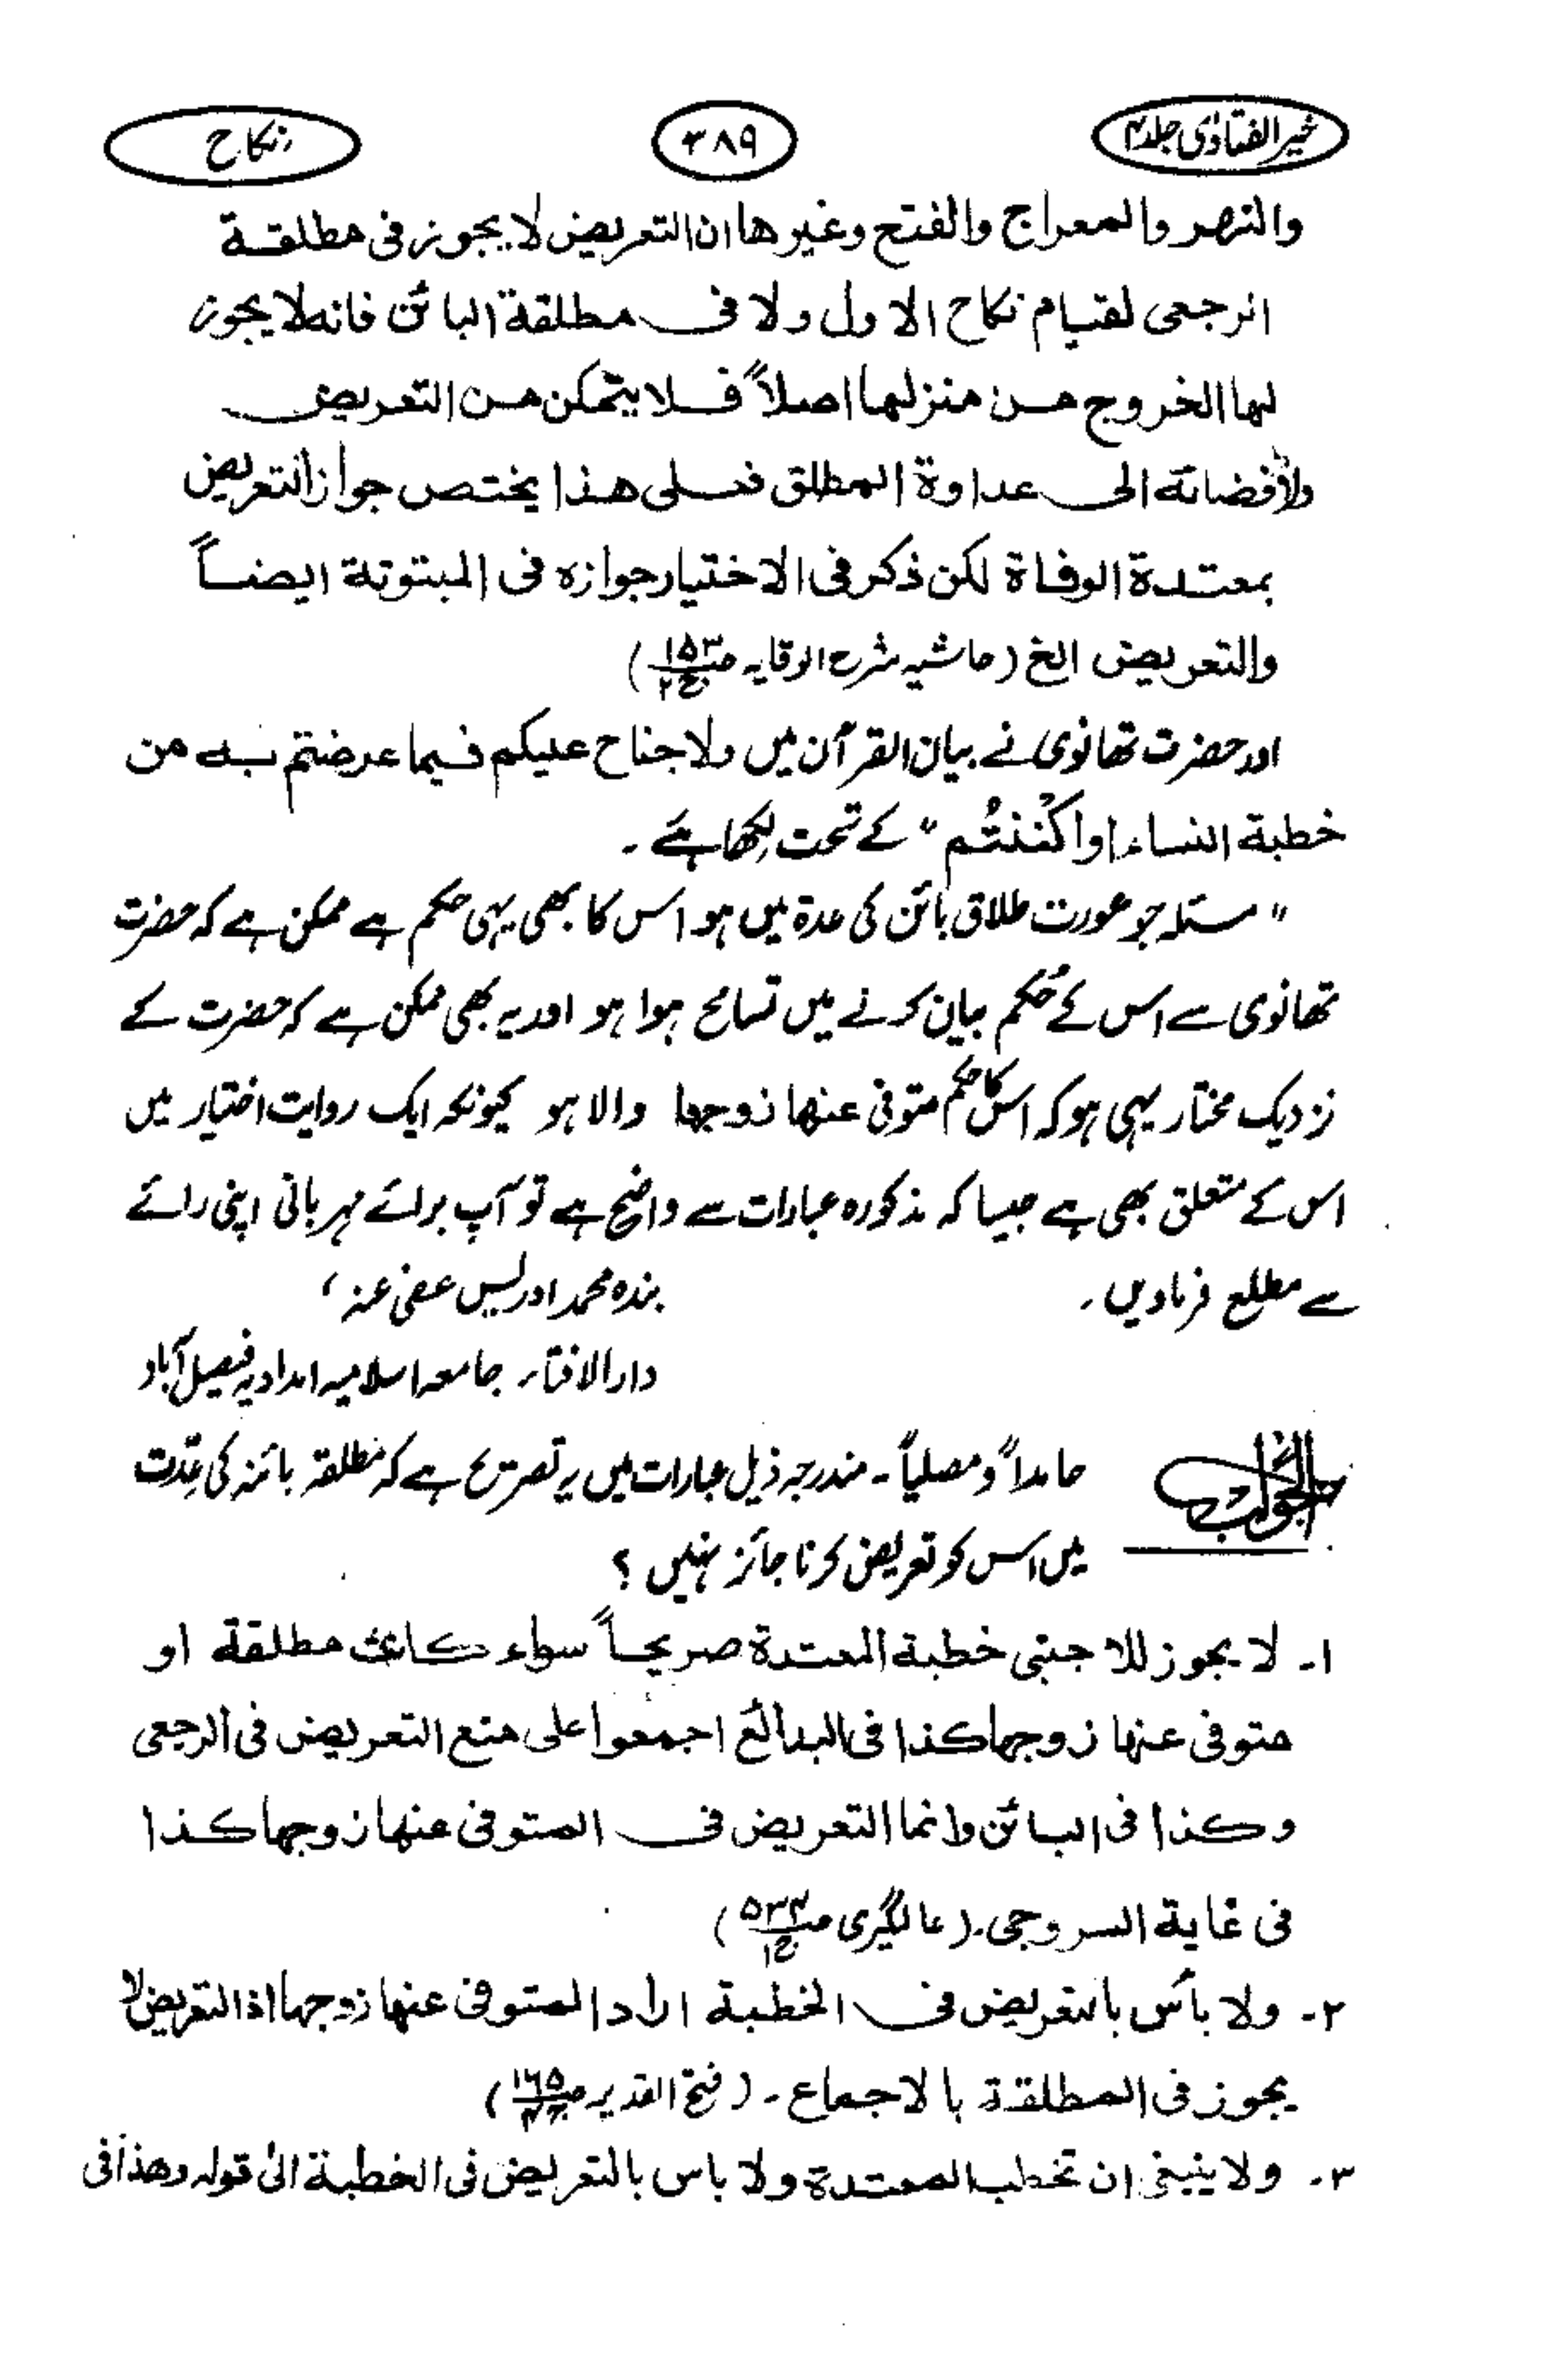 خیر الفتاوٰی جلد ۴
۳۸۹
نکاح
والنهر والمعراج والفتح وغيرها ان التعريض لا يجوز فى مطلقة
الرجعى لقيام نكاح الاول ولا فى مطلقة البائن فانه لا يجوز
لها الخروج من منزلها اصلاً فلا يتمكن من التعريض
ولأفضائه الى عداوة المطلق فعلى هذا يختص جواز التعريض
بمعتدة الوفاة لكن ذكر فى الاختيار جوازه فى المبتوتة ايضاً
والتعريض الخ (حاشیہ شرح الوقایہ ص۱۵۳ ج۲)
اور حضرت تھانوی نے بیان القرآن میں ولا جناح عليكم فيما عرضتم به من
خطبة النساء او اكننتُم " کے تحت لکھا ہے ۔
" مسئلہ جو عورت طلاق بائن کی عدۃ میں ہو اس کا بھی یہی حکم ہے ممکن ہے کہ حضرت
تھانوی سے اس کے حُکم بیان کرنے میں تسامح ہوا ہو اور یہ بھی ممکن ہے کہ حضرت کے
نزدیک مختار یہی ہو کہ اس کا حکم متوفی عنها زوجها والا ہو کیونکہ ایک روایت اختیار میں
اس کے متعلق بھی ہے جیسا کہ مذکورہ عبارات سے واضح ہے تو آپ برائے مہربانی اپنی رائے
سے مطلع فرماویں ۔
بندہ محمد ادریس عفی عنہ ،
دارالافتاء جامعہ اسلامیہ امدادیہ فیصل آباد
الجواب
حامداً و مصلیاً ۔ مندرجہ ذیل عبارات میں یہ تصریح ہے کہ مطلقہ بائنہ کی عِدّت
میں اس کو تعریض کرنا جائز نہیں ؟
۱۔ لا يجوز للاجنبى خطبة المعتدة صريحاً سواء كانت مطلقة او
متوفى عنها زوجها كذا فى البدائع اجمعوا على منع التعريض فى الرجعى
وكذا فى البائن وانما التعريض فى المتوفى عنها زوجها كذا
فى غاية السروجى۔ (عالمگیری ص۵۳۴ ج۱)
۲۔ ولا بأس بالتعريض فى الخطبة اراد المتوفى عنها زوجها اذ التعريض لا
يجوز فى المطلقة بالاجماع۔ (فتح القدیر ص۱۶۵ ج۴)
۳۔ ولا ينبغى ان تخطب المعتدة ولا باس بالتعريض فى الخطبة الیٰ قوله وهذا فى